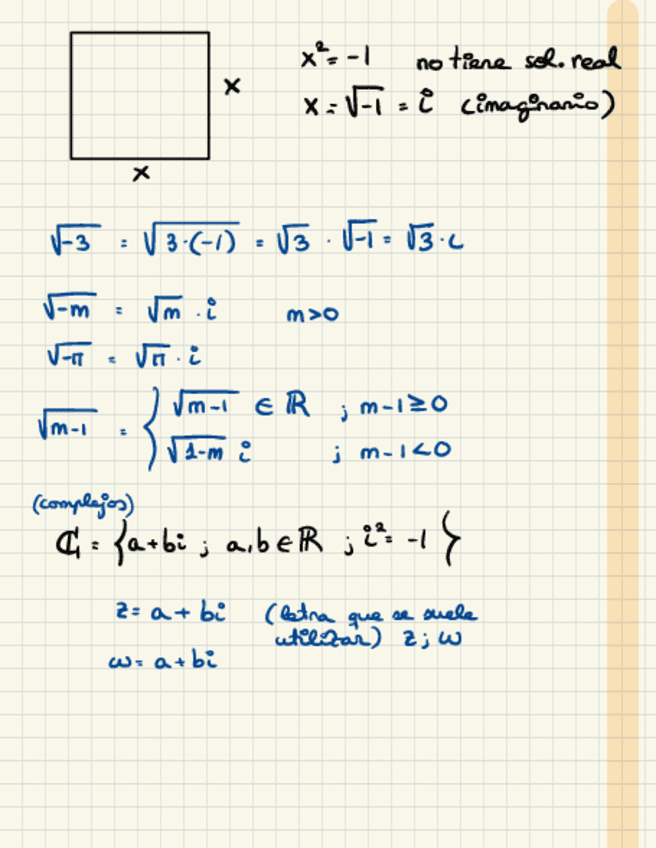 x² = -1 no tiene sol. real
x
x = √-1 = i (imaginario)
x
√-3 = √3·(-1) = √3 · √-1 = √3 · i
√-m = √m · i m>0
√-π = √π · i
√m-1 = { √m-1 ∈ ℝ ; m-1≥0
√1-m i ; m-1<0
(complejos)
ℂ = {a+bi ; a,b ∈ ℝ ; i² = -1}
z = a + bi (letra que se suele
utilizar) z; ω
ω = a + bi